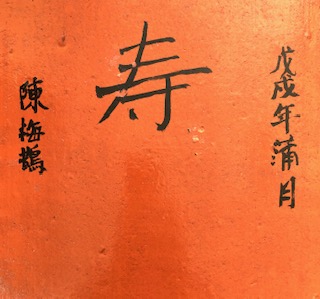 戊戌年蒲月
寿
陳梅鵲